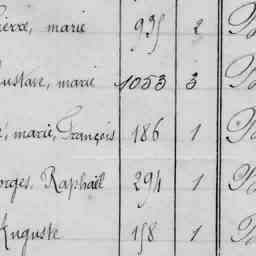 ierre, marie 935 2
ustave, marie 1053 3
, marie, François 186 1
orges, Raphaël 294 1
Auguste 158 1